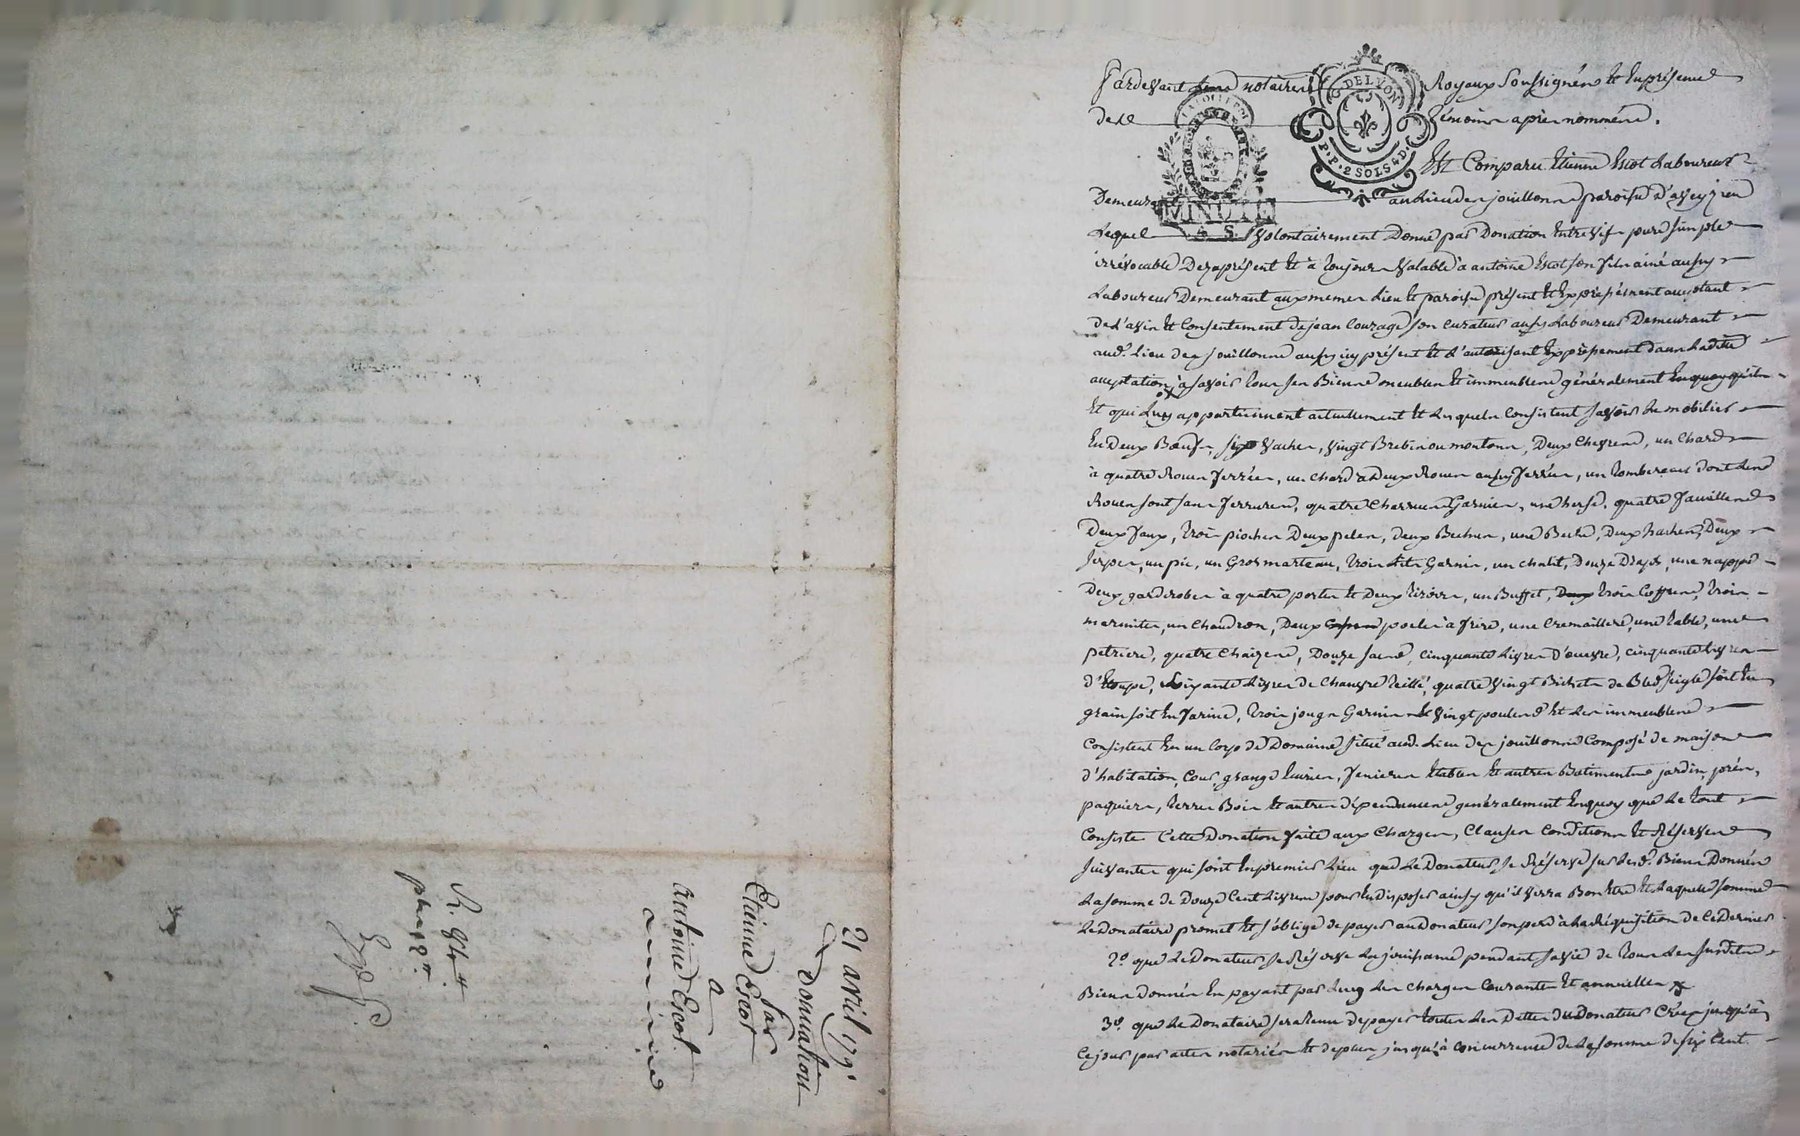 21 avril 1791
Donnation
par
Etienne Escot
a
Antoine Escot
G. DE LYON
P.P. 2 SOLS 4 D.
LA LOI ET LE ROI
MINUTE
4 S.
Pardevant Les notaires Royaux Soussignés Et En présence
de témoins aprés nommés.
Est Comparu Etienne Escot Laboureur
Demeurant au Lieu des jouillons paroisse d'aveyzieu
Lequel volontairement Donne par Donation Entrevifs pure simple
irrévocable Des aprésent Et à toujours valable à antoine Escot son fils ainé aussy
Laboureur Demeurant aux mêmes Lieu Et paroisse présent Et Expréssément acceptant
de L'avis Et Consentement de jean Couzage son curateur aussy Laboureur Demeurant
aud. Lieu des jouillons aussy icy présent Et L'autorisant Expréssement dans Ladite
acceptation, à savoir tous ses Biens meubles Et immeubles généralement Enquoy qu'ils
Et qui Luy appartiennent actuellement Et Lesquels Consistent savoir Le mobilier
En Deux Bœufs, six vaches, vingt Brebis ou moutons, Deux Chevres, un Chard
à quatre Roues ferrées, un Chard à Deux Roues aussy ferrées, un tombereau dont Les
Roues sont sans ferrures, quatre Charrues Garnies, une herse, quatre faucilles
Deux faux, trois pioches Deux pelles, deux Beches, une Beche, Deux haches, Deux
serpes, un pic, un Gros marteau, trois Lits Garnis, un chalit, Douze Draps, une nappe
Deux garderobes à quatre portes Et Deux tiroirs, un Buffet, Deux trois Coffres, trois
marmites, un Chaudron, Deux poeles à frire, une Cremaillere, une table, une
petriere, quatre Chaizes, Douze sacs, cinquante Livres D'œuvre, cinquante Livres
d'Etoupe, soixante Livres de Chanvre teillé, quatre vingt Bichets de Bled seigle soit En
grain soit En farine, trois jougs Garnis Et vingt poules Et Les immeubles
Consistent En un Corps de Domaine situé aud. Lieu des jouillons Composé de maison
d'habitation, Cour grange Ecuries, fenieres Etables Et autres Batiments jardin, prés,
paquiers, terres Bois Et autres dépendances généralement Enquoy que Le tout
Consiste Cette Donation faite aux Charges, Clauses Conditions Et Réserves
suivantes qui sont En premier Lieu que Le Donateur se Réserve sur Lesd. Biens Donnés
La somme de Douze Cent Livres pour En disposer ainsy qu'il verra Bon Etre Et Laquelle somme
Le Donataire promet Et s'oblige de payer au Donateur son pere à La Réquisition de Ce Dernier
2.º que Le Donateur se Réserve La jouissance pendant sa vie de tous Les susdits
Biens Donnés En payant par Luy Les Charges Courantes Et annuelles
3.º que Le Donataire sera tenu de payer toutes Les Dettes du Donateur Crées jusqu'à
Ce jour par actes notariés Et de plus jusqu'à Concurrence de La somme de six Cent